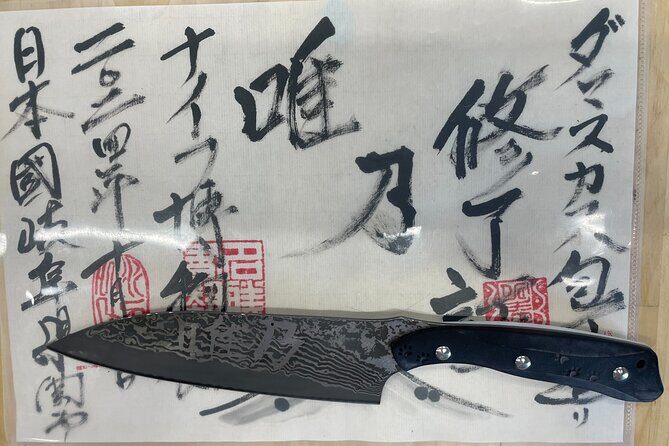 ダマスカス包
修了証
唯乃
ナイフ博物
二〇二四年十月日
日本國岐阜県関市
唯乃